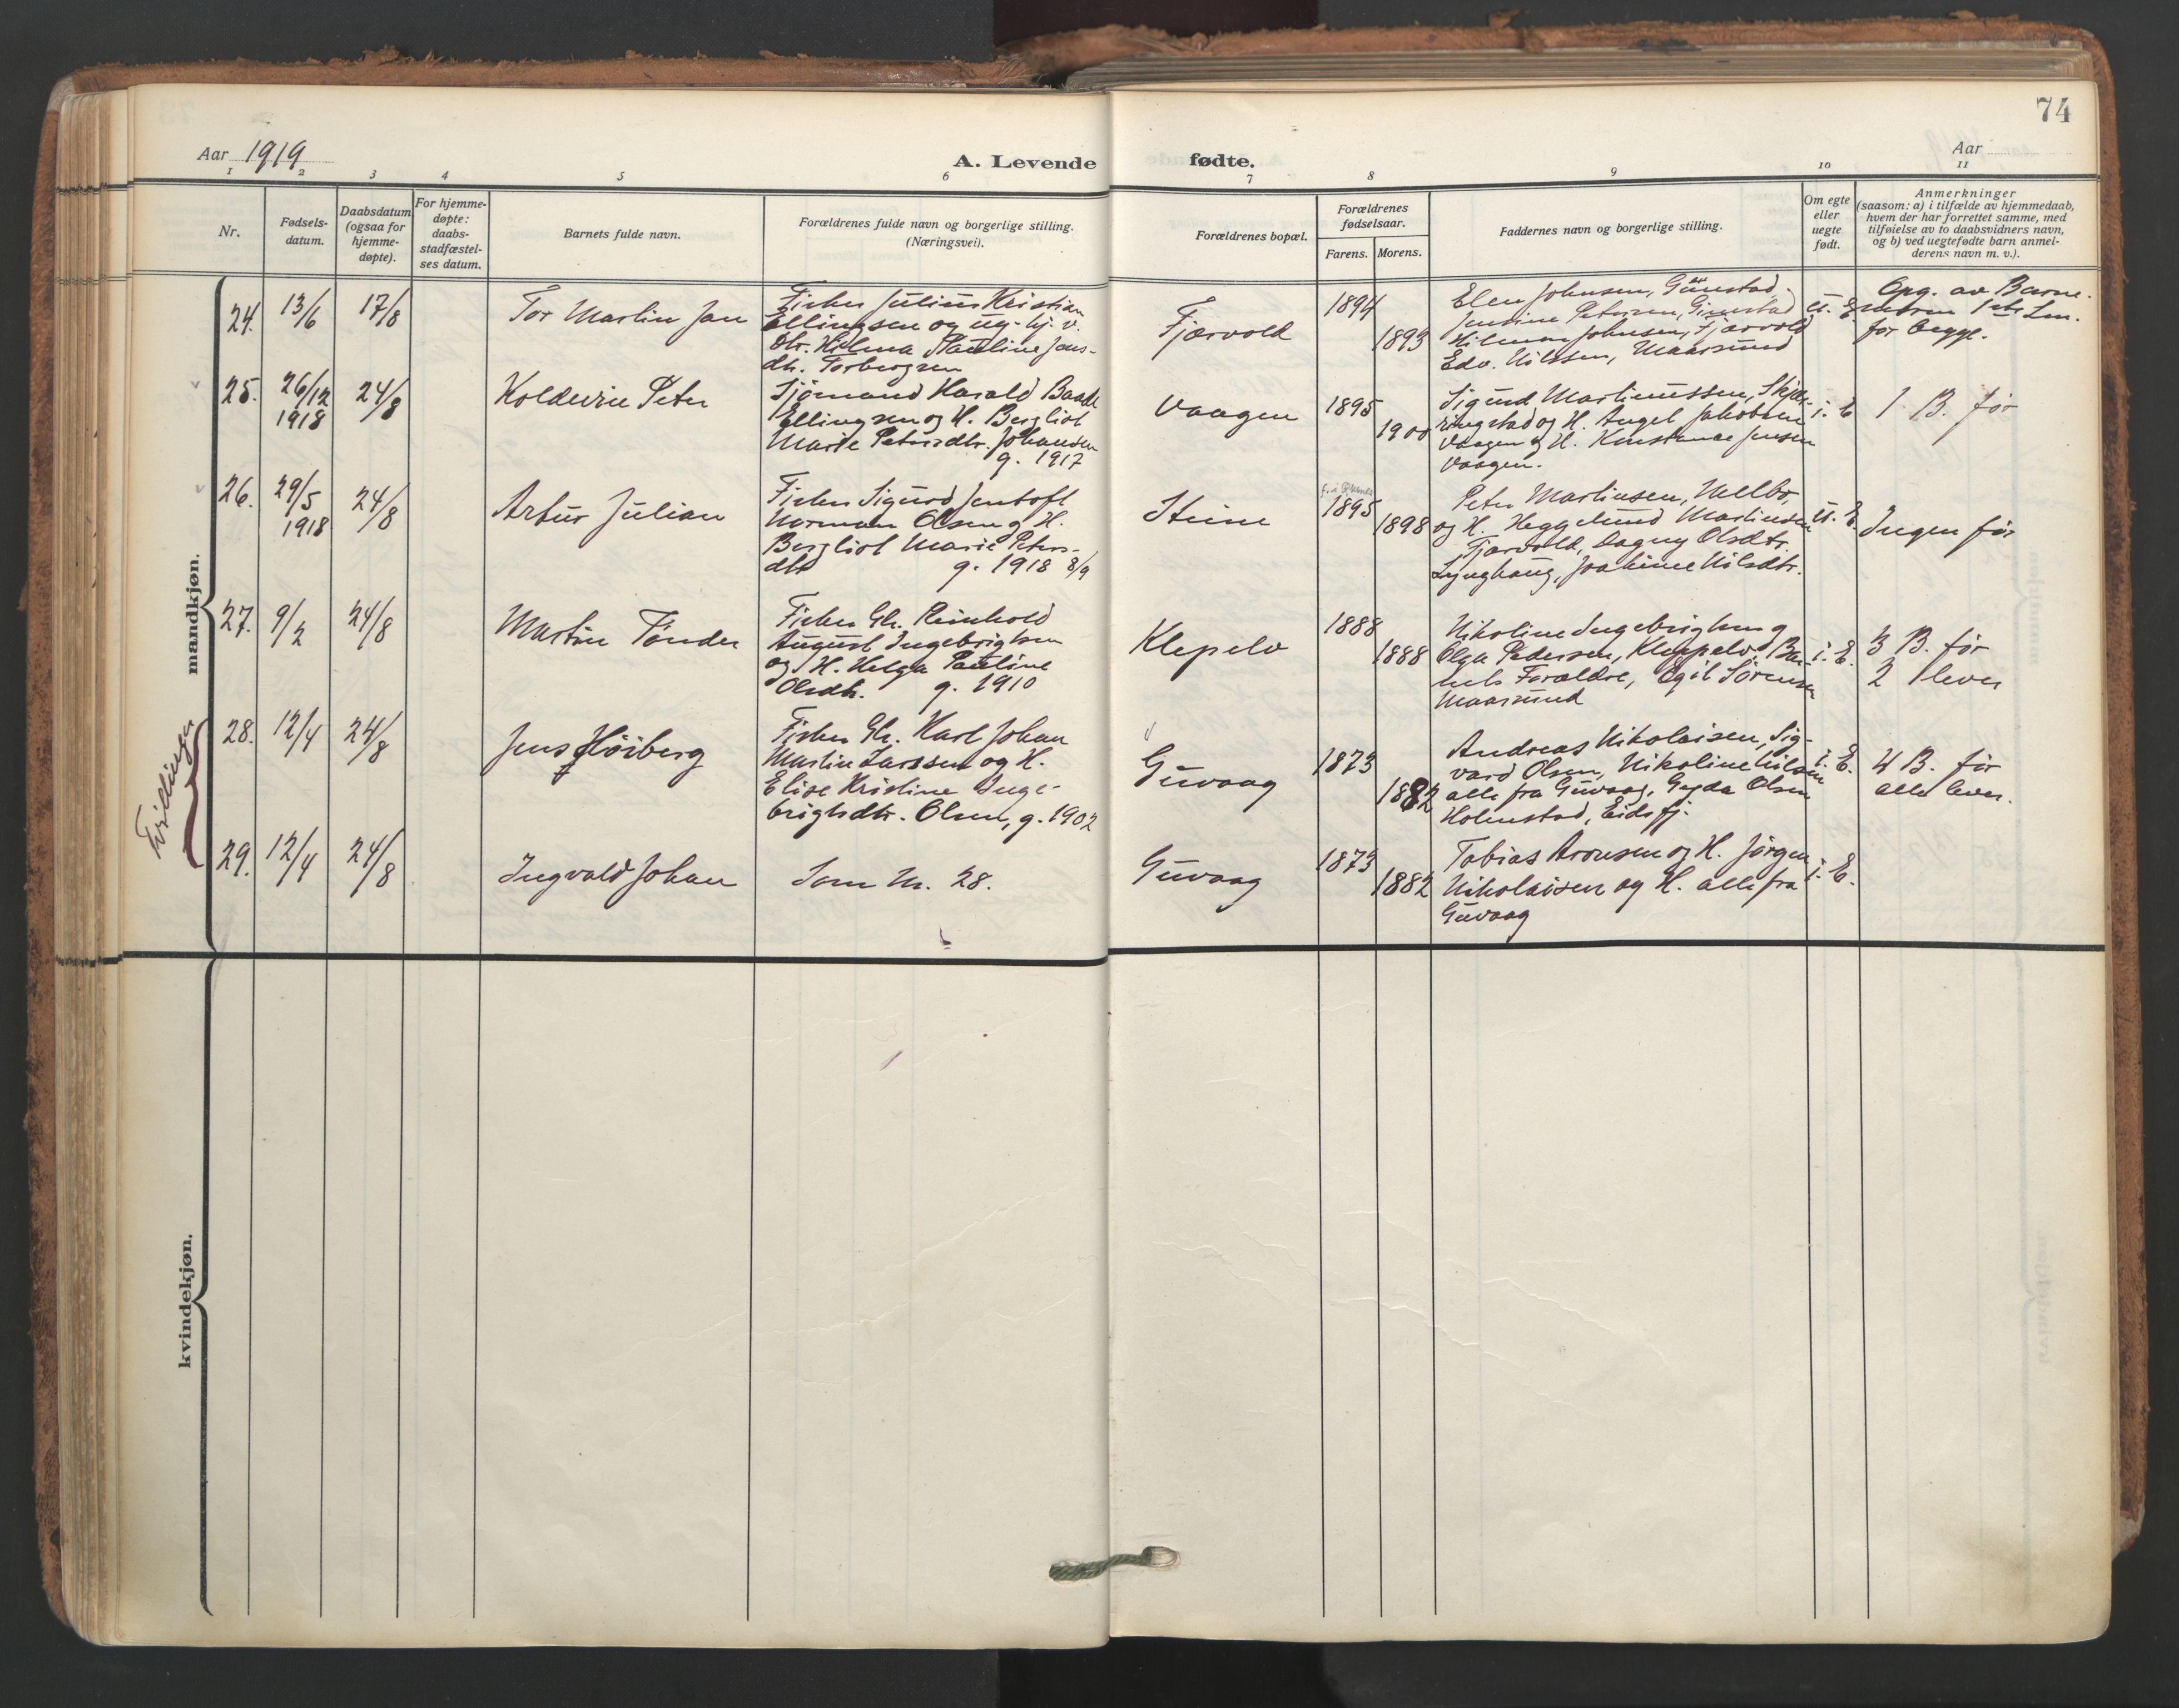 74
Aar 1919
A. Levende
fødte.
Aar
1 2 3 4 5 6 7 8 9 10 11
Nr.
Fødsels-
datum.
Daabsdatum
(ogsaa for
hjemme-
døpte).
For hjemme-
døpte:
daabs-
stadfæstel-
ses datum.
Barnets fulde navn.
Forældrenes fulde navn og borgerlige stilling.
(Næringsvei).
Forældrenes bopæl.
Forældrenes
fødselsaar.
Farens. Morens.
Faddernes navn og borgerlige stilling.
Om egte
eller
uegte
født.
Anmerkninger
(saasom: a) i tilfælde av hjemmedaab,
hvem der har forrettet samme, med
tilføielse av to daabsvidners navn,
og b) ved uegtefødte barn anmel-
derens navn m. v.).
mandkjøn.
24. 13/6 17/8
Tor Martin Jan
Fisker Julius Kristian
Ellingsen og ug. hj. v.
Dtr. Hilma Pauline Jens-
dtr. Torbergsen
Fjærvold
1894
1893
Elen Johnsen, Guustad
Jensine Petersen,
Hilmar Johnsen, Fjærvold
Edv. Nilssen, Maarsund
U. E.
Opg. av Barne-
moren
for begge.
25. 26/12
1918
24/8
Koldevin Peter
Sjömand Harald Baade
Ellingsen og H. Bergliot
Marie Petersdtr. Johansen
g. 1917
Vaagen
1895
1900
Sigurd Martinussen, Skjær-
ringstad og H. Angel Jakobsen
Vaagen og H. Konstanse Jensen
Vaagen.
i. E
1 B. før
26. 29/5
1918
24/8
Artur Julian
Fisker Sigurd Jentoft
Norman Olsen og H.
Bergliot Marie Peters-
dtr g. 1918 8/9
Steine
1895
1898
Peter Martinsen, Melbo,
og H. Heggelund Martinsen
Fjærvold, Dagny Olsdtr.
Lynghaug, Joakime Nilsdtr.
U. E.
Ingen før
27. 9/2 24/8
Martin Tönder
Fisker Gbr. Reinhold
August Ingebrigtsen
og H. Helga Pauline
Olsdtr. g. 1910
Klepelv
1888
1888
Nikoline Ingebrigtsen og
Olga Pedersen, Kleppelv. Bar-
nets Forældre, Egil Sörensen
Maarsund
i. E.
3 B. før
2 lever
Tvillinger
28. 12/4 24/8
Jens Höiberg
Fisker Gbr. Karl Johan
Martin Larssen og H.
Elise Kristine Inge-
brigtsdtr. Olsen, g. 1902
Guvaag
1873
1882
Andreas Nikolaisen, Sig-
vard Olsen, Nikoline Nilsen
alle fra Guvaag, Gyda Olsen
Holmstad, Eidsfj.
i. E.
4 B. før
alle lever.
29. 12/4 24/8
Ingvald Johan
Som Nr. 28.
Guvaag
1873
1882
Tobias Aronsen og H. Jörgen
Nikolaisen og H. alle fra
Guvaag
i. E.
kvindekjøn.